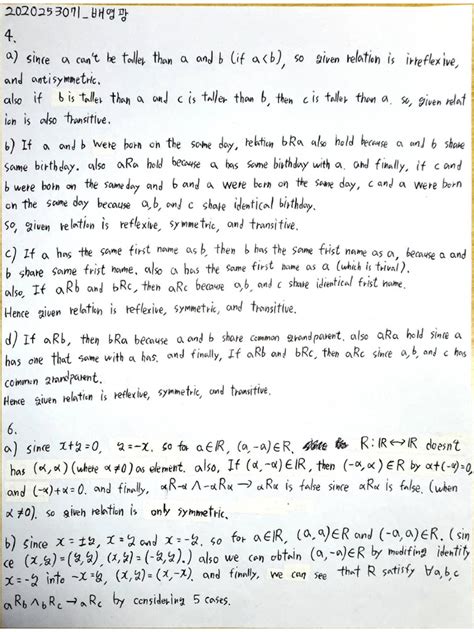 2020253071_배영광
4.
a) since a can't be taller than a and b (if a<b), so given relation is irreflexive,
and antisymmetric.
also if b is taller than a and c is taller than b, then c is taller than a. so, given relat
ion is also transitive.
b) If a and b were born on the same day, relation bRa also hold because a and b share
same birthday. also aRa hold because a has some birthday with a. and finally, if c and
b were born on the same day and b and a were born on the same day, c and a were born
on the same day because a,b, and c share identical birthday.
so, given relation is reflexive, symmetric, and transitive.
c) If a has the same first name as b, then b has the same frist name as a, because a and
b share same frist name. also a has the same first name as a (which is trival).
also, If aRb and bRc, then aRc because a,b, and c share idientical frist name.
Hence given relation is reflexive, symmetric, and transitive.
d) If aRb, then bRa because a and b share common grandparent. also aRa hold since a
has one that same with a has. and finally, If aRb and bRc, then aRc since a,b, and c has
common grandparent.
Hence given relation is reflexive, symmetric, and transitive.
6.
a) since x+y=0, y=-x. so for a∈ℝ, (a,-a)∈R. R:ℝ↔ℝ doesn't
has (α,α) (where α≠0) as element. also, If (α,-α)∈R, then (-α,α)∈R by α+(-α)=0,
and (-α)+α=0. and finally, αR-α ∧ -αRα → αRα is false since αRα is false. (when
α≠0). so given relation is only symmetric.
b) since x=±y, x=y and x=-y. so for a∈ℝ, (a,a)∈R and (-a,a)∈R. (sin
ce (x,y)=(y,y), (x,y)=(-y,y).) also we can obtain (a,-a)∈R by modifing identify
x=-y into -x=y, (x,y)=(x,-x). and finally, we can see that R satisfy ∀a,b,c
aRb ∧ bRc → aRc by considering 5 cases.